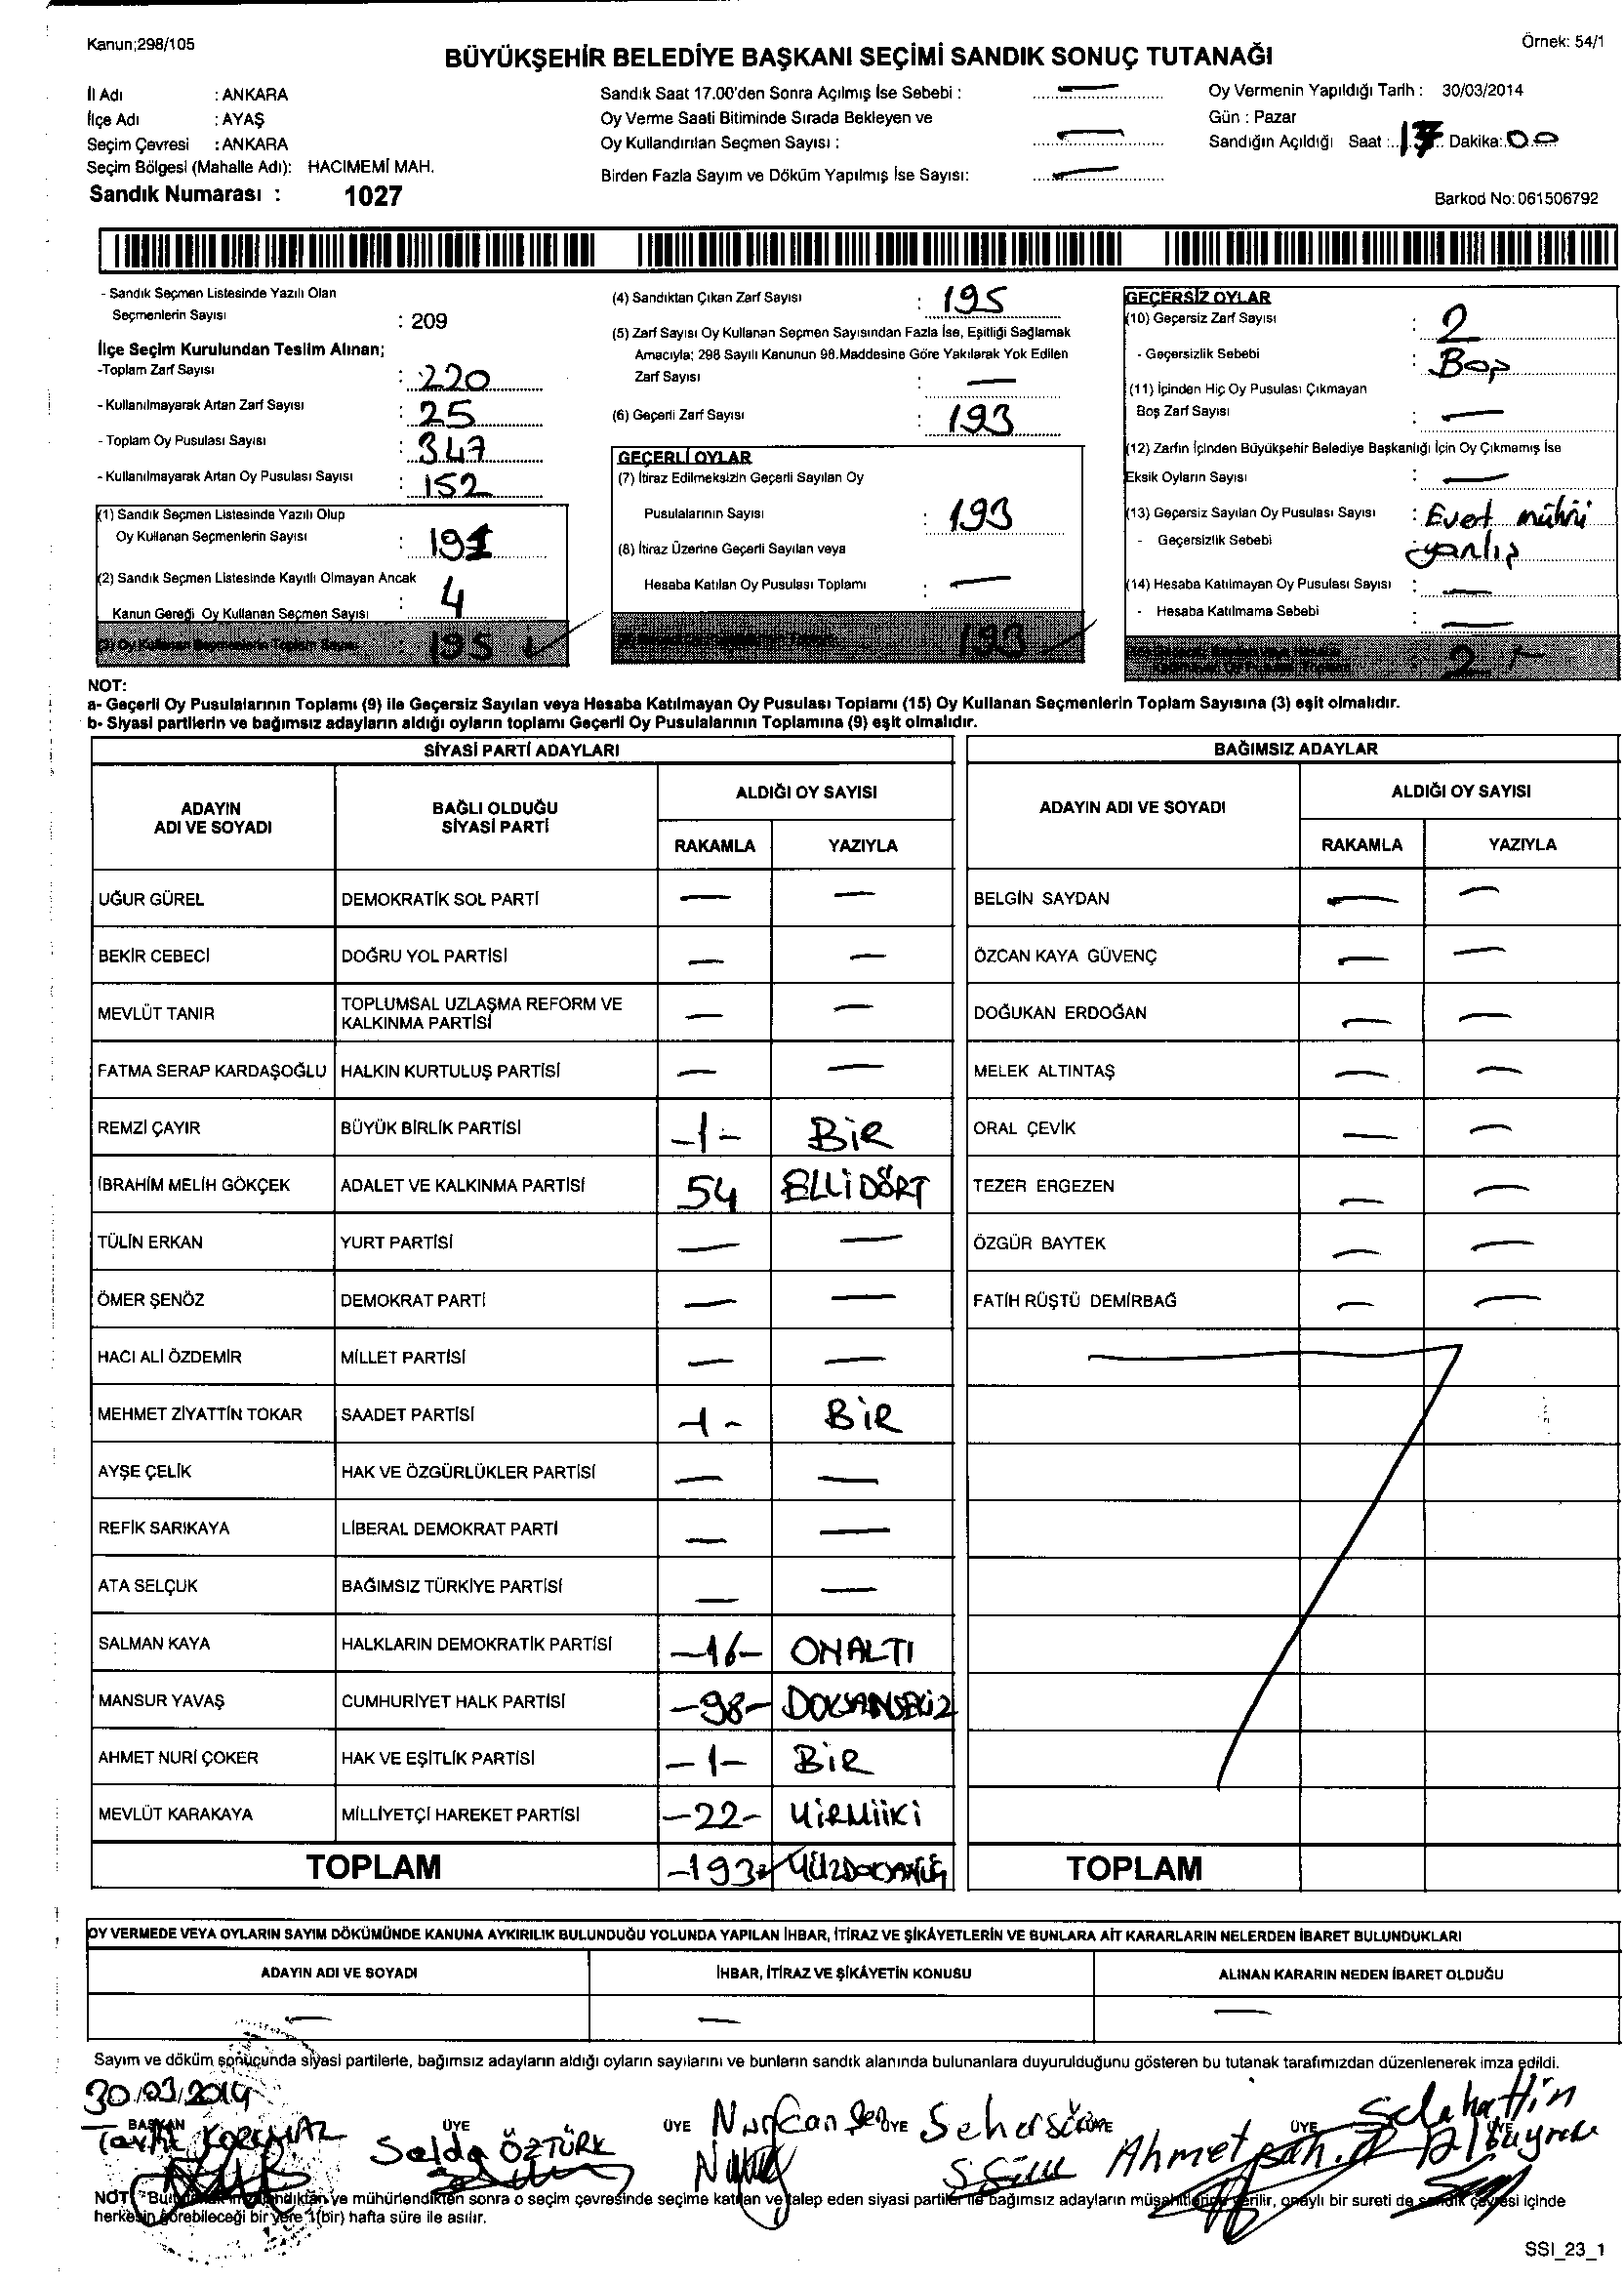 Kanun;298/105
Örnek: 54/1
BÜYÜKŞEHİR BELEDİYE BAŞKANI SEÇİMİ SANDIK SONUÇ TUTANAĞI
İl Adı : ANKARA
İlçe Adı : AYAŞ
Seçim Çevresi : ANKARA
Seçim Bölgesi (Mahalle Adı): HACIMEMİ MAH.
Sandık Numarası : 1027
Sandık Saat 17.00'den Sonra Açılmış İse Sebebi : —
Oy Verme Saati Bitiminde Sırada Bekleyen ve
Oy Kullandırılan Seçmen Sayısı : —
Birden Fazla Sayım ve Döküm Yapılmış İse Sayısı: —
Oy Vermenin Yapıldığı Tarih : 30/03/2014
Gün : Pazar
Sandığın Açıldığı Saat : 17 Dakika: 00
Barkod No: 061506792
- Sandık Seçmen Listesinde Yazılı Olan
Seçmenlerin Sayısı : 209
İlçe Seçim Kurulundan Teslim Alınan;
-Toplam Zarf Sayısı : 220
- Kullanılmayarak Artan Zarf Sayısı : 25
- Toplam Oy Pusulası Sayısı : 347
- Kullanılmayarak Artan Oy Pusulası Sayısı : 152
(1) Sandık Seçmen Listesinde Yazılı Olup
Oy Kullanan Seçmenlerin Sayısı : 191
(2) Sandık Seçmen Listesinde Kayıtlı Olmayan Ancak
Kanun Gereği Oy Kullanan Seçmen Sayısı : 4
(3) Oy Kullanan Seçmenlerin Toplam Sayısı : 195
(4) Sandıktan Çıkan Zarf Sayısı : 195
(5) Zarf Sayısı Oy Kullanan Seçmen Sayısından Fazla İse, Eşitliği Sağlamak
Amacıyla; 298 Sayılı Kanunun 98.Maddesine Göre Yakılarak Yok Edilen
Zarf Sayısı : —
(6) Geçerli Zarf Sayısı : 193
GEÇERLİ OYLAR
(7) İtiraz Edilmeksizin Geçerli Sayılan Oy
Pusulalarının Sayısı : 193
(8) İtiraz Üzerine Geçerli Sayılan veya
Hesaba Katılan Oy Pusulası Toplamı : —
193
GEÇERSİZ OYLAR
(10) Geçersiz Zarf Sayısı : 2
- Geçersizlik Sebebi : Boş
(11) İçinden Hiç Oy Pusulası Çıkmayan
Boş Zarf Sayısı : —
(12) Zarfın İçinden Büyükşehir Belediye Başkanlığı İçin Oy Çıkmamış İse
Eksik Oyların Sayısı : —
(13) Geçersiz Sayılan Oy Pusulası Sayısı : Evet mührü
- Geçersizlik Sebebi yanlış
(14) Hesaba Katılmayan Oy Pusulası Sayısı : —
- Hesaba Katılmama Sebebi : —
2
NOT:
a- Geçerli Oy Pusulalarının Toplamı (9) ile Geçersiz Sayılan veya Hesaba Katılmayan Oy Pusulası Toplamı (15) Oy Kullanan Seçmenlerin Toplam Sayısına (3) eşit olmalıdır.
b- Siyasi partilerin ve bağımsız adayların aldığı oyların toplamı Geçerli Oy Pusulalarının Toplamına (9) eşit olmalıdır.
SİYASİ PARTİ ADAYLARI
ADAYIN ADI VE SOYADI BAĞLI OLDUĞU SİYASİ PARTİ ALDIĞI OY SAYISI
RAKAMLA YAZIYLA
UĞUR GÜREL DEMOKRATİK SOL PARTİ — —
BEKİR CEBECİ DOĞRU YOL PARTİSİ — —
MEVLÜT TANIR TOPLUMSAL UZLAŞMA REFORM VE KALKINMA PARTİSİ — —
FATMA SERAP KARDAŞOĞLU HALKIN KURTULUŞ PARTİSİ — —
REMZİ ÇAYIR BÜYÜK BİRLİK PARTİSİ -1- BİR
İBRAHİM MELİH GÖKÇEK ADALET VE KALKINMA PARTİSİ 54 ELLİDÖRT
TÜLİN ERKAN YURT PARTİSİ — —
ÖMER ŞENÖZ DEMOKRAT PARTİ — —
HACI ALİ ÖZDEMİR MİLLET PARTİSİ — —
MEHMET ZİYATTİN TOKAR SAADET PARTİSİ -1- BİR
AYŞE ÇELİK HAK VE ÖZGÜRLÜKLER PARTİSİ — —
REFİK SARIKAYA LİBERAL DEMOKRAT PARTİ — —
ATA SELÇUK BAĞIMSIZ TÜRKİYE PARTİSİ — —
SALMAN KAYA HALKLARIN DEMOKRATİK PARTİSİ -16- ONALTI
MANSUR YAVAŞ CUMHURİYET HALK PARTİSİ -98- DOKSANSEKİZ
AHMET NURİ ÇOKER HAK VE EŞİTLİK PARTİSİ -1- BİR
MEVLÜT KARAKAYA MİLLİYETÇİ HAREKET PARTİSİ -22- YİRMİİKİ
TOPLAM -193- YÜZDOKSANÜÇ
BAĞIMSIZ ADAYLAR
ADAYIN ADI VE SOYADI ALDIĞI OY SAYISI
RAKAMLA YAZIYLA
BELGİN SAYDAN — —
ÖZCAN KAYA GÜVENÇ — —
DOĞUKAN ERDOĞAN — —
MELEK ALTINTAŞ — —
ORAL ÇEVİK — —
TEZER ERGEZEN — —
ÖZGÜR BAYTEK — —
FATİH RÜŞTÜ DEMİRBAĞ — —
TOPLAM
OY VERMEDE VEYA OYLARIN SAYIM DÖKÜMÜNDE KANUNA AYKIRILIK BULUNDUĞU YOLUNDA YAPILAN İHBAR, İTİRAZ VE ŞİKÂYETLERİN VE BUNLARA AİT KARARLARIN NELERDEN İBARET BULUNDUKLARI
ADAYIN ADI VE SOYADI İHBAR, İTİRAZ VE ŞİKÂYETİN KONUSU ALINAN KARARIN NEDEN İBARET OLDUĞU
— — —
Sayım ve döküm sonuçunda siyasi partilerle, bağımsız adayların aldığı oyların sayılarını ve bunların sandık alanında bulunanlara duyurulduğunu gösteren bu tutanak tarafımızdan düzenlenerek imza edildi.
30.03.2014
BAŞKAN ÜYE ÜYE ÜYE ÜYE ÜYE
KORKMAZ Selda ÖZTÜRK Nurcan Şen Seher Ahmet Selahattin
NOT: Bu ve mühürlendikten sonra o seçim çevresinde seçime katılan ve talep eden siyasi partiler ile bağımsız adayların müşahitlerine verilir, onaylı bir sureti de sandık çevresi içinde
herkesin görebileceği bir yere 1(bir) hafta süre ile asılır.
SSI_23_1